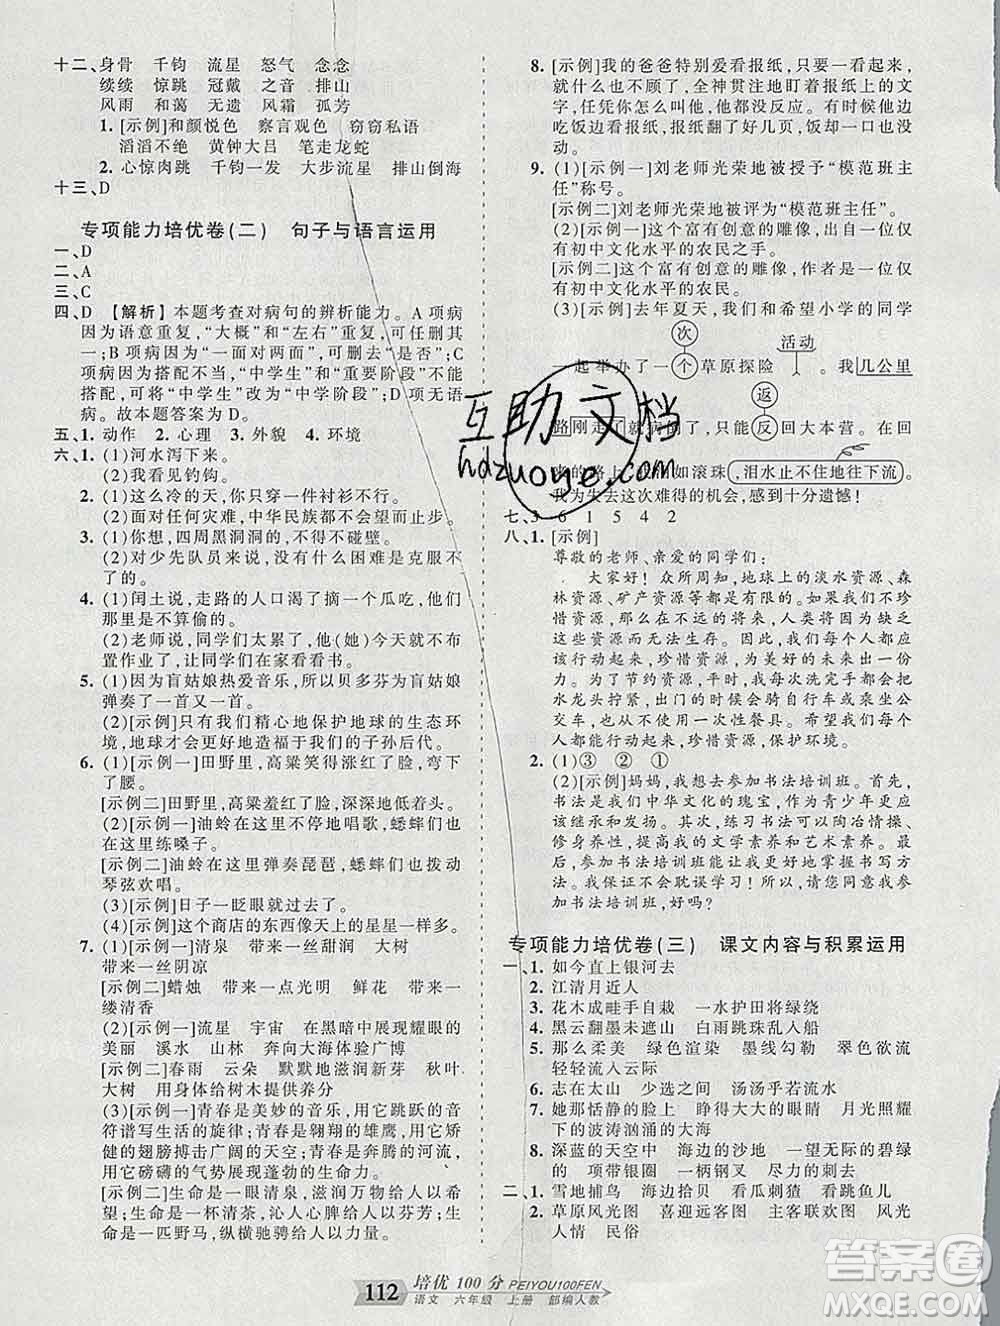 十二、身骨 千钧 流星 怒气 念念
续续 惊跳 冠戴 之音 排山
风雨 和蔼 无遗 风霜 孤芳
1. [示例]和颜悦色 察言观色 窃窃私语
滔滔不绝 黄钟大吕 笔走龙蛇
2. 心惊肉跳 千钧一发 大步流星 排山倒海
十三、D
专项能力培优卷(二) 句子与语言运用
一、D
二、A
三、C
四、D 【解析】本题考查对病句的辨析能力。A项病
因为语意重复,“大概”和“左右”重复,可任删其
一;B项病因为“一面对两面”,可删去“能否”;C项
病因为搭配不当,“中学生”与“重要阶段”不能
搭配,可将“中学生”改为“中学阶段”;D项无语
病。故本题答案为D。
五、1. 动作 2. 心理 3. 外貌 4. 环境
六、1. (1)河水泻下来。
(2)我看见钓钩。
2. (1)这么冷的天,你只穿一件衬衫不行。
(2)面对任何灾难,中华民族都不会而止步。
3. (1)你想,四周黑洞洞的,不得不碰壁。
(2)对少先队员来说,没有什么困难是克服不
了的。
4. (1)闰土说,走路的人口渴了摘一个瓜吃,他们
那里是不算偷的。
(2)老师说,同学们太累了,他(她)今天就不布
置作业了,让同学们在家看看书。
5. (1)因为盲姑娘热爱音乐,所以贝多芬为盲姑娘
弹奏了一首又一首。
(2)[示例]只有我们精心地保护地球的生态环
境,地球才能更好地造福于我们的子孙后代。
6. (1)[示例一]田野里,高粱笑得涨红了脸,弯下
了腰。
[示例二]田野里,高粱羞红了脸,深深低着头。
(2)[示例一]油蛉在这里不停地唱歌,蟋蟀们也
在这里练嗓子。
[示例二]油蛉在这里弹奏琵琶,蟋蟀们在这里
琴弦欢唱。
(3)[示例]日子一眨眼就过去了。
(4)[示例]这个商店的东西像天上的星星一样多。
7. (1)[示例一]清泉 带来一丝甜润 大树
带来一丝阴凉
[示例二]蜡烛 带来一点光明 鲜花 带来一
缕清香
(2)[示例一]流星 宇宙 在黑暗中展现耀眼的
美丽 溪水 山林 奔向大海体验广博
[示例二]春雨 云朵 默默地滋润新芽 秋叶
大树 用身体给树木提供养分
(3)[示例一]青春是美妙的音乐,用它跳跃的音
符谱写生活的旋律;青春是翱翔的雄鹰,用它矫
健的翅膀搏击广阔的天空;青春是奔腾的河流,
用它磅礴的气势展现蓬勃的生命力。
[示例二]生命是一眼清泉,滋润万物的心灵;生
命是一杯清茶,沁人心脾的芳香四处飘逸;生
命是一匹野马,纵横驰骋的脚步永不停息。
8. [示例]我的爸爸特别爱看报纸,只要一看起来,
就什么都不顾了,全神贯注地盯着报纸上的文
字,任凭你怎么叫他,他都没反应。有时候他在
吃饭边看报纸,报纸翻了好几页,饭却一动没
动。
9. (1)[示例一]刘老师光荣地被授予“模范班主
任”称号。
[示例二]刘老师光荣地被评为“模范班主任”。
(2)[示例一]这个富有创意的雕像,出自一位仅
有初中文化水平的农民之手。
[示例二]这个富有创意的雕像,作者是一位仅
有初中文化水平的农民。
(3)[示例]去年夏天,我们和希望小学的同学
次 活动
一起举办了一个草原探险。我几公里
返
路刚走了就病倒了,只好反回大本营。在回
来的路上,我泪如滚珠,泪水止不住地往下流。
我为失去这次难得的机会,感到十分遗憾!
七、3 6 1 5 4 2
八、1. [示例]
尊敬的老师、亲爱的同学们:
大家好!众所周知,地球上的淡水资源、森
林资源、矿产资源等都是有限的。如果我们不珍
惜资源,那么在不远的将来,人类将因为缺乏
这些资源而无法生存。因此,我们每个人都应
行动起来,珍惜资源,为美好的未来献出一份
力。为了节约资源,平时,我们每次洗完手都会把
水龙头拧紧,出门的时候会骑自行车或坐公
交车,也不使用一次性餐具。希望我们每个
人都能行动起来,珍惜资源,保护环境。
2. (1)③ ② ①
(2)[示例]妈妈,我想参加书法培训班。首先,
书法是我们中华文化的瑰宝,作为青少年更应
该继承和发扬。其次,练习书法可以陶冶情操、
修身养性,提高我们的文学素养和艺术素养。如
果参加书法培训班还能更好地掌握书写方
法。我保证不会耽误学习!妈妈,请您同意我参
加书法培训班,好吗?
专项能力培优卷(三) 课文内容与积累运用
一、1. 如今直上银河去
2. 江清月近人
3. 花木成畦手自栽 一水护田将绿绕
4. 黑云翻墨未遮山 白雨跳珠乱入船
5. 那么柔美 绿色渲染 墨线勾勒 翠色欲流
轻轻流入云际
6. 志在太山 少选之间 汤汤乎若流水
7. 她那恬静的脸上 睁得大大的眼睛 月光照耀
下的波涛汹涌的大海
8. 深蓝的天空中 海边的沙地 一望无际的碧绿
的 项带银圈 一柄钢叉 尽力的刺去
二、1. 雪地捕鸟 海边拾贝 看瓜刺猹 看跳鱼儿
2. 草原风光图 喜迎远客图 主客联欢图 风光
人情 民俗
互助文档
hdzuoye.com
112 培优100分 PEIYOU100FEN
语文 六年级 上册 部编人教
答案圈
MXQE.COM